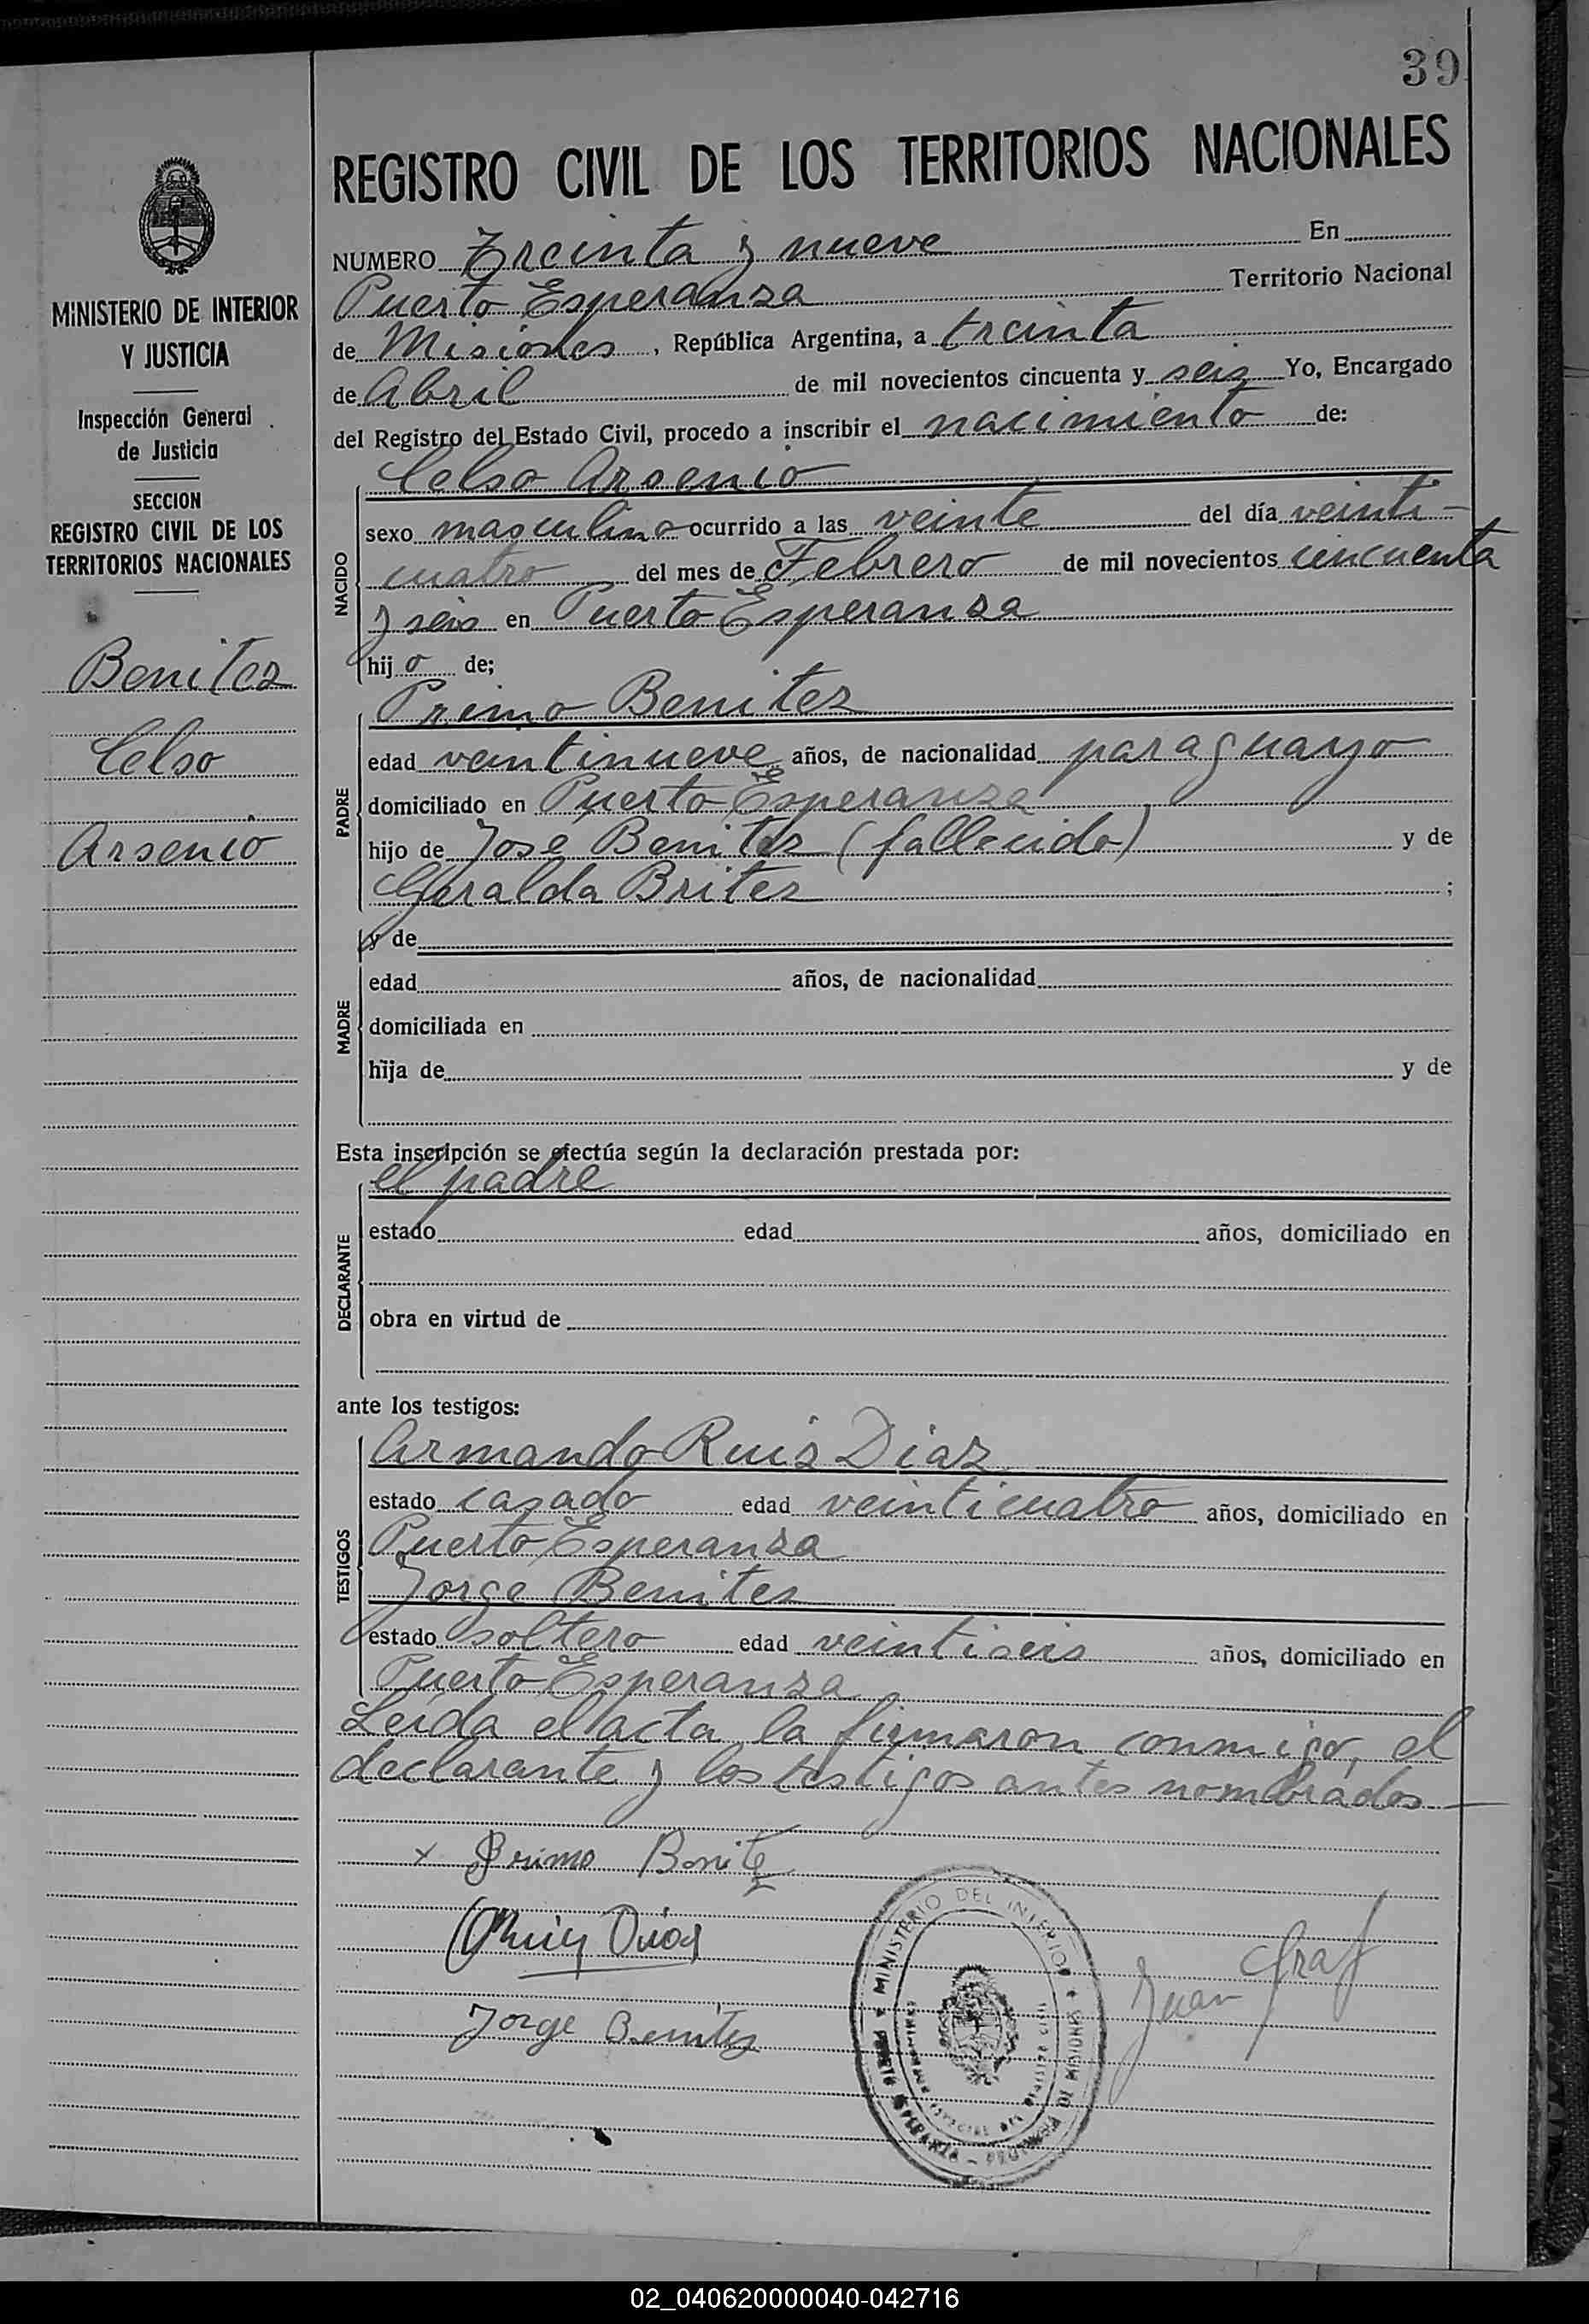 39
REGISTRO CIVIL DE LOS TERRITORIOS NACIONALES
MINISTERIO DE INTERIOR
Y JUSTICIA
Inspección General
de Justicia
SECCION
REGISTRO CIVIL DE LOS
TERRITORIOS NACIONALES
Benitez
Celso
Arsenio
NUMERO Treinta y nueve En
Puerto Esperanza Territorio Nacional
de Misiones, República Argentina, a treinta
de Abril de mil novecientos cincuenta y seis Yo, Encargado
del Registro del Estado Civil, procedo a inscribir el nacimiento de:
Celso Arsenio
NACIDO
sexo masculino ocurrido a las veinte del día veinti-
cuatro del mes de Febrero de mil novecientos cincuenta
y seis en Puerto Esperanza
hijo de;
Primo Benitez
PADRE
edad veintinueve años, de nacionalidad paraguayo
domiciliado en Puerto Esperanza
hijo de José Benitez (fallecido) y de
Geralda Britez ;
y de
MADRE
edad años, de nacionalidad
domiciliada en
hija de y de
Esta inscripción se efectúa según la declaración prestada por:
el padre
DECLARANTE
estado edad años, domiciliado en
obra en virtud de
ante los testigos:
Armando Ruiz Diaz
TESTIGOS
estado casado edad veinticuatro años, domiciliado en
Puerto Esperanza
Jorge Benitez
estado soltero edad veintiseis años, domiciliado en
Puerto Esperanza
Leída el acta, la firmaron conmigo, el
declarante y los testigos antes nombrados
x Primo Benitez
Ruiz Diaz
Jorge Benitez
Juan Graf
MINISTERIO DEL INTERIOR
PUERTO ESPERANZA - PROVINCIA DE MISIONES
02_040620000040-042716